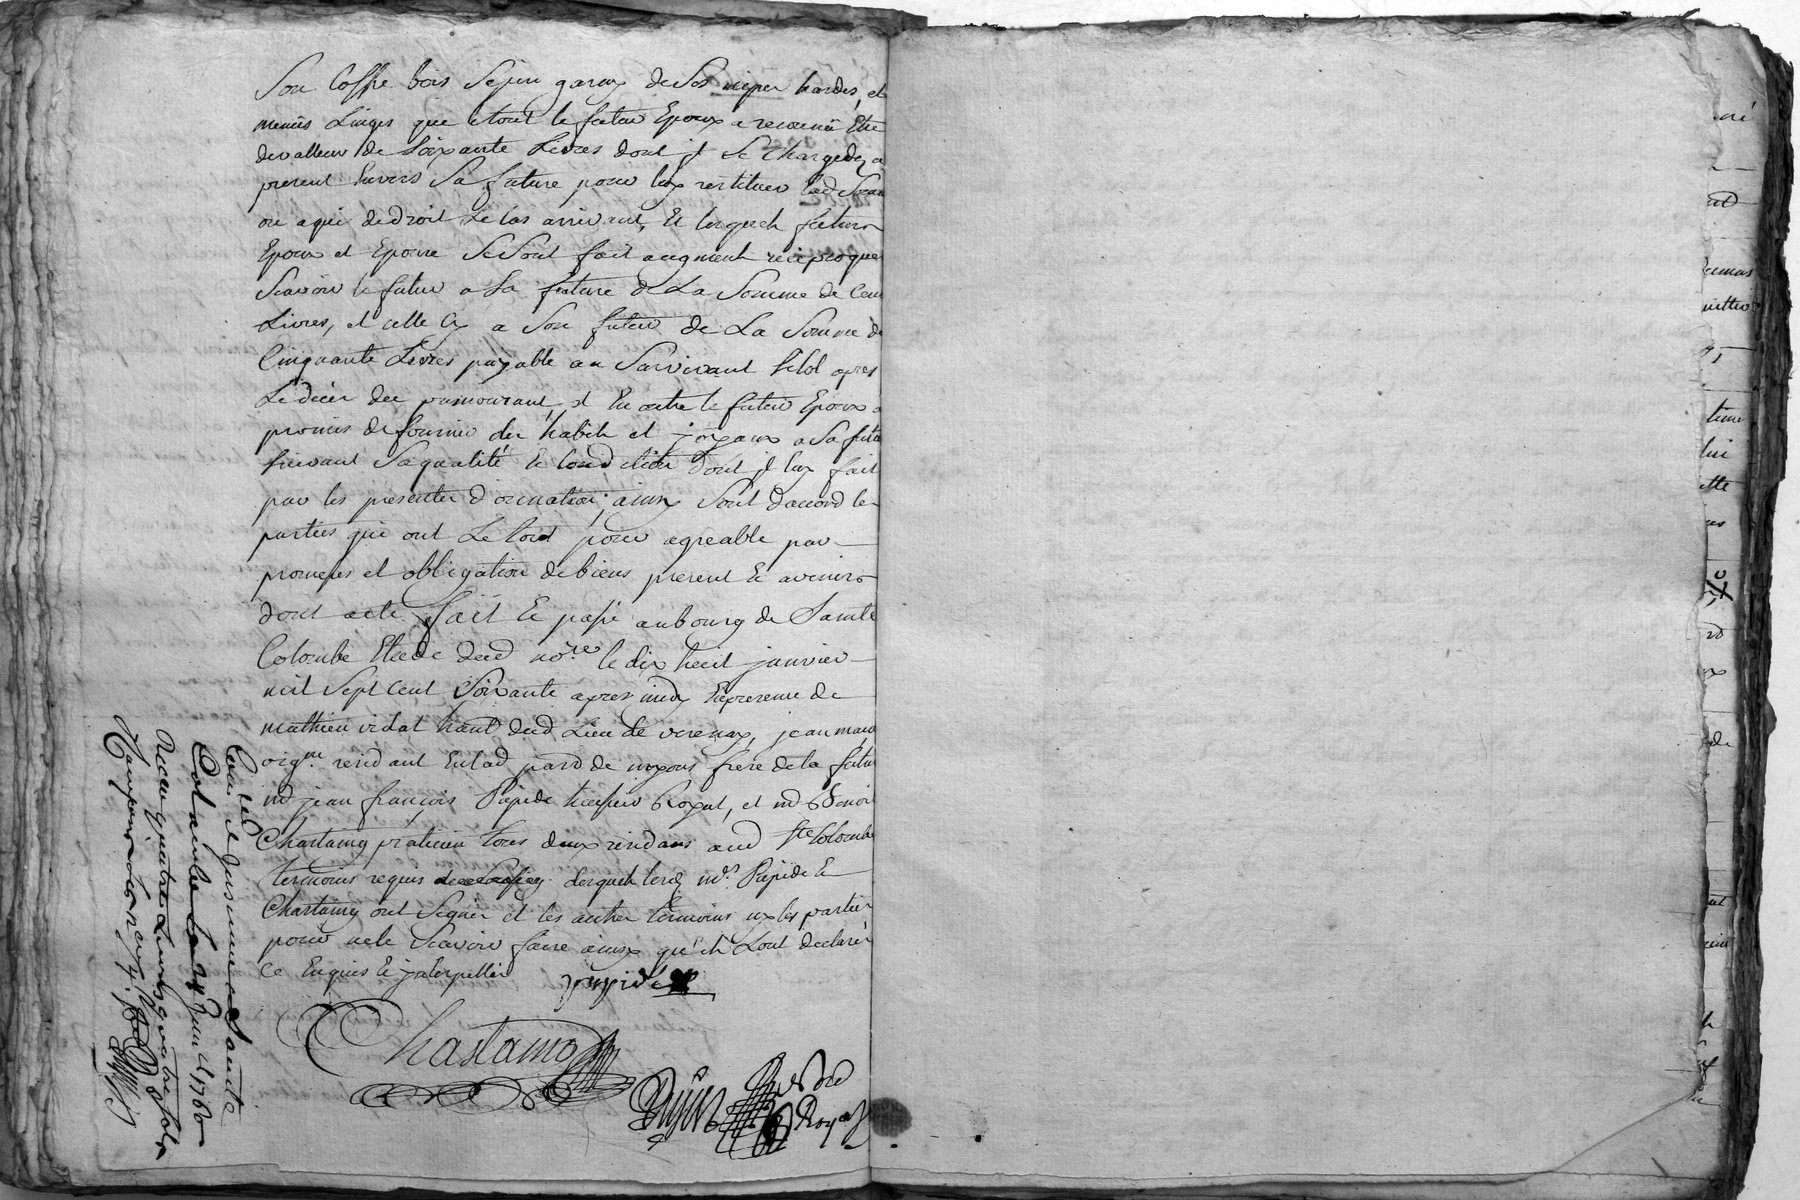 Son Coffre bois Sepin garny de Ses nipes hardes, et
menus Linges que etout le futur Epoux a reconnu Etre
de valleur de Soixante Livres dont jl Se charge dez a
present Envers Sa future pour luy restituer lad. Som
ou a qui de droit Le Cas arrivant, Et lesquels futurs
Epoux et Epouse Se Sont fait augment reciproque
Scavoir le futur a Sa future de La Somme de Cent
Livres, et celle Cy a Son futur de La Somme de
Cinquante Livres payable au Survivant Sitot apres
Le deces du pmourant, et En outre le futur Epoux a
promis de fournir des habits et joyaux a Sa futu
Suivant Sa qualité Et Condition dont jl luy fait
par les presentes donnation, ainsy Sont daccord les
parties qui ont Le tout pour agreable par
promesses et obligation de biens present Et avenirs
dont acte fait Et passé au bourg de Sainte
Colombe Etude dud. no.re le dix huit janvier
mil Sept cent Soixante apres midy En presence de
mathieu vidal hant dud. Lieu de verenay, jean
vig.n residant En lad. par.d de frere de la future
jean françois Pupide Royal, et Benoit
Chastaing praticien tous deux residans aud. Ste Colombe
temoins requis desquels lesd. m.rs Pupide Et
Chastaing ont Signés et les autres temoins ny les parties
pour ne le Scavoir faire ainsy qu'ils L'ont declarés
Ce Enquis Et jnterpellés
pupide
Chastaing
Royal
Conté et Insinué a Sainte
Colombe Le 29 janv. 1760
Recu quatre Livres quatre sols